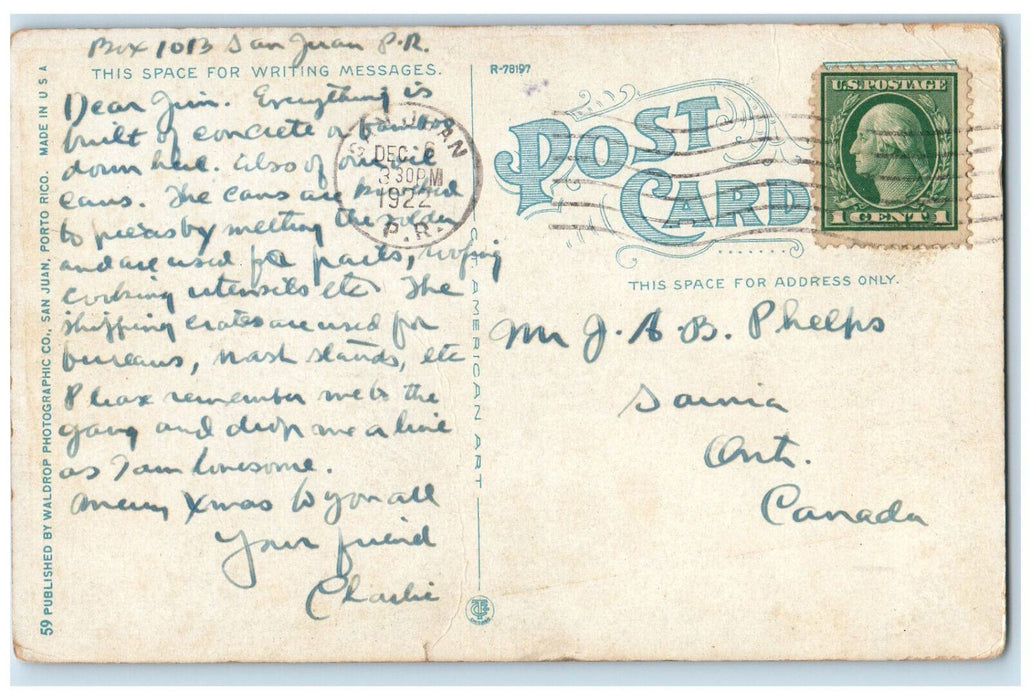 Box 1013 San Juan P.R.
THIS SPACE FOR WRITING MESSAGES.
Dear Jim. Everything is
built of concrete or bamboo
down here. Also of old oil
cans. The cans are knocked
to pieces by melting the solder
and are used for pails, roofing
cooking utensils etc. The
shipping crates are used for
bureaus, wash stands, etc
Please remember me to the
gang and drop me a line
as I am lonesome.
Merry Xmas to you all
Your friend
Charlie
59 PUBLISHED BY WALDROP PHOTOGRAPHIC CO., SAN JUAN, PORTO RICO. MADE IN U S A
AMERICAN ART
R-78197
SAN JUAN
DEC 6
3 30 PM
1922
P.R.
POST
CARD
U.S. POSTAGE
1 CENT 1
THIS SPACE FOR ADDRESS ONLY.
Mr J. A. B. Phelps
Sarnia
Ont.
Canada